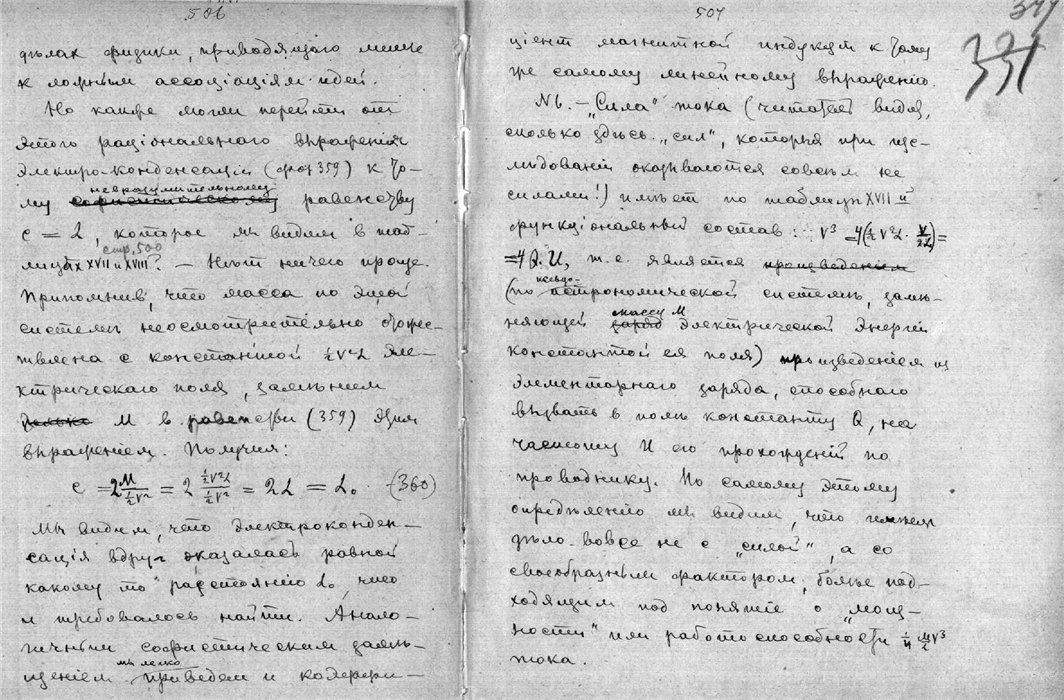 506
дѣлах физики, приводящаго мысль
к ложным ассоціаціям идей.
Но какже могли перейти от
этого раціональнаго выраженія
электро-конденсаціи (фор 359) к то-
невразумительному
му равенству
c = L, которое мы видим в таб-
стр. 500
лицах XVII и XVIII? — Нѣт ничего проще.
Припомнив, что масса по этой
системѣ неосмотрительно отоже-
ствлена с константой ½V²L эле-
ктрическаго поля, замѣним
M в равенствѣ (359) этим
выраженіем. Получим:
c = 2 M / ½V² = 2 ½V²L / ½V² = 2L = L₀ (360)
Мы видим, что электроконден-
сація вдруг оказалась равной
какому то разстоянію L₀, что
и требовалось найти. Анало-
гичным софистическим замѣ-
мы легко
щеніем приведем и коэффи-
507
391
ціент магнитной индукціи к тому
же самому линейному выраженію.
NB. — „Сила" тока (читатель видя,
сколько здѣсь „сил", которыя при изс-
лѣдованіи оказываются совсѣм не
силами!) имѣет по таблицѣ XVII й
функціональный состав: V³ = 4(½V²L · V/2L) =
= 4Q.И, т.е. является произведеніем
псевдо-
(по астрономической системѣ, замѣ-
массу M
няющей заряд электрической энергіи
константой ея поля) произведеніем из
элементарнаго заряда, способнаго
вызвать в полѣ константу Q, на
частоту И его прохожденій по
проводнику. По самому этому
опредѣленію мы видим, что имѣем
дѣло вовсе не с „силой", а со
своеобразным фактором, болѣе под-
ходящим под понятіе о „мощ-
ности" или работоспособности ¼ M/2 V³
тока.